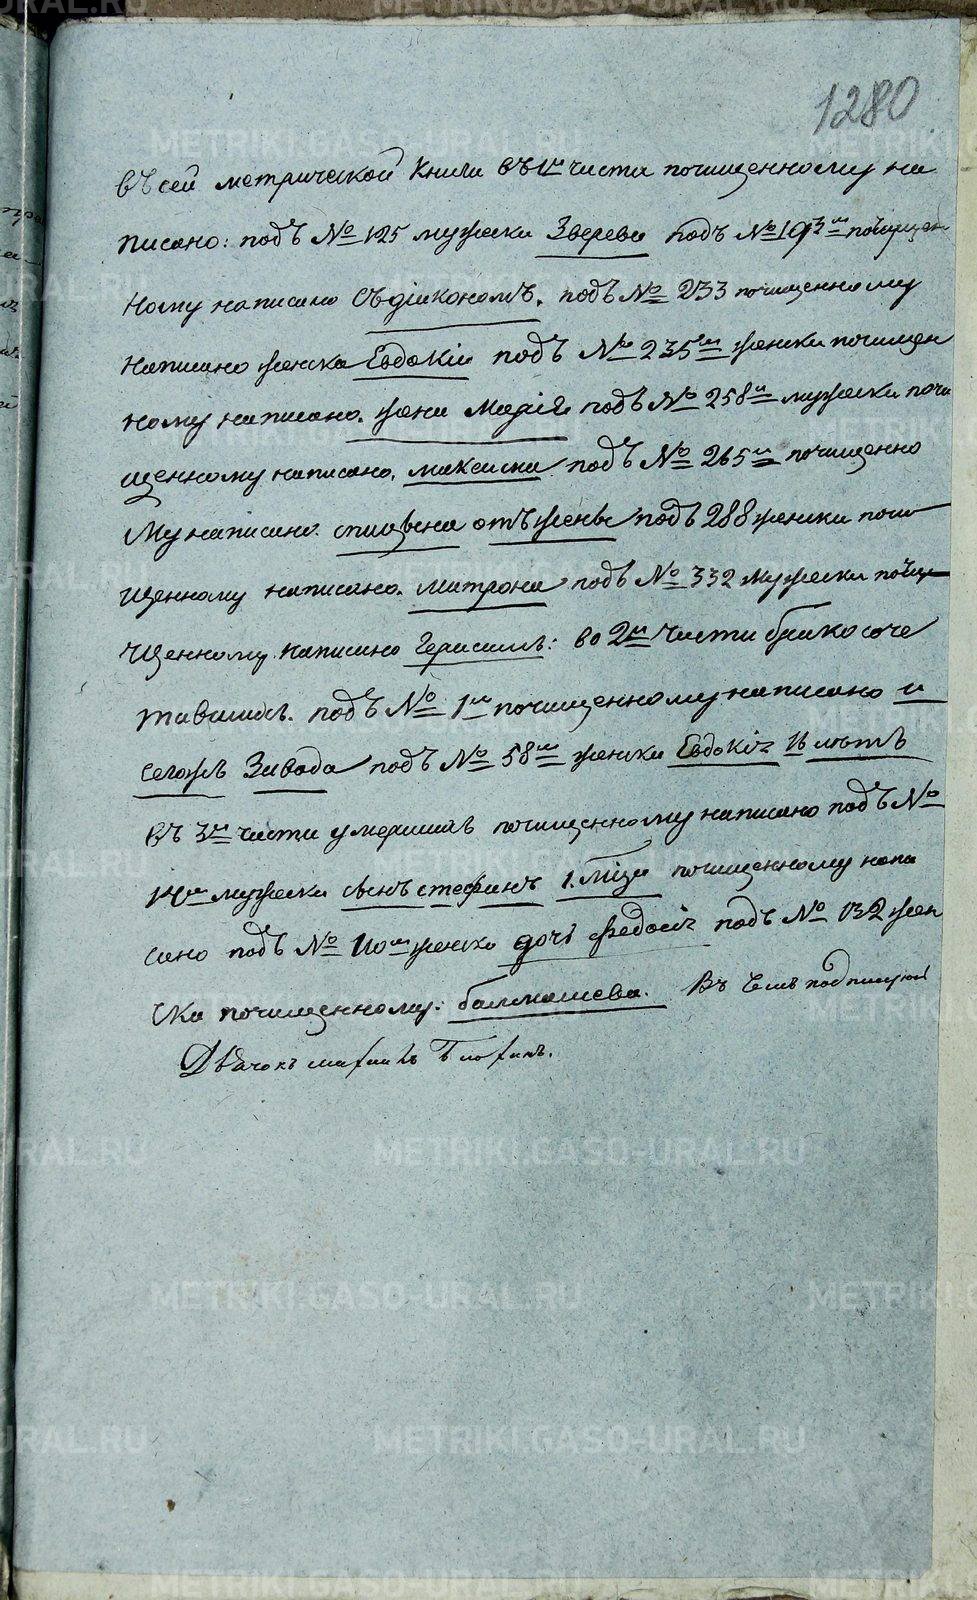 1280
Въ сей метрической книги въ 1й части почищенному на
писано: подъ № 125 мужеска Зверева подъ № 193м почищен
ному написано Съ діакономъ. подъ № 233 почищенному
написано женска Евдокіи подъ № 235м женски почищен
ному написано. жена Марія подъ № 258м мужеска почи
щенному написано. максима подъ № 265м почищенно
му написано. отъ жены подъ 288 женски почи
щенному написано. матрона подъ № 332 мужеска почи
щенному написано Герасимъ: во 2й части бракосоче
тавшихъ. подъ № 1м почищенному написано и
сегожъ Завода подъ № 58м женски Евдокія 16 летъ
въ 3й части умершихъ почищенному написано подъ №
14м мужеска сынъ стефанъ 1. мца почищенному напи
сано подъ № 110м женско дочь Федосія подъ № 132 жен
ска почищенному: балмашева. Въ чемъ подписуюсь
Дьячокъ
METRIKI.GASO-URAL.RU